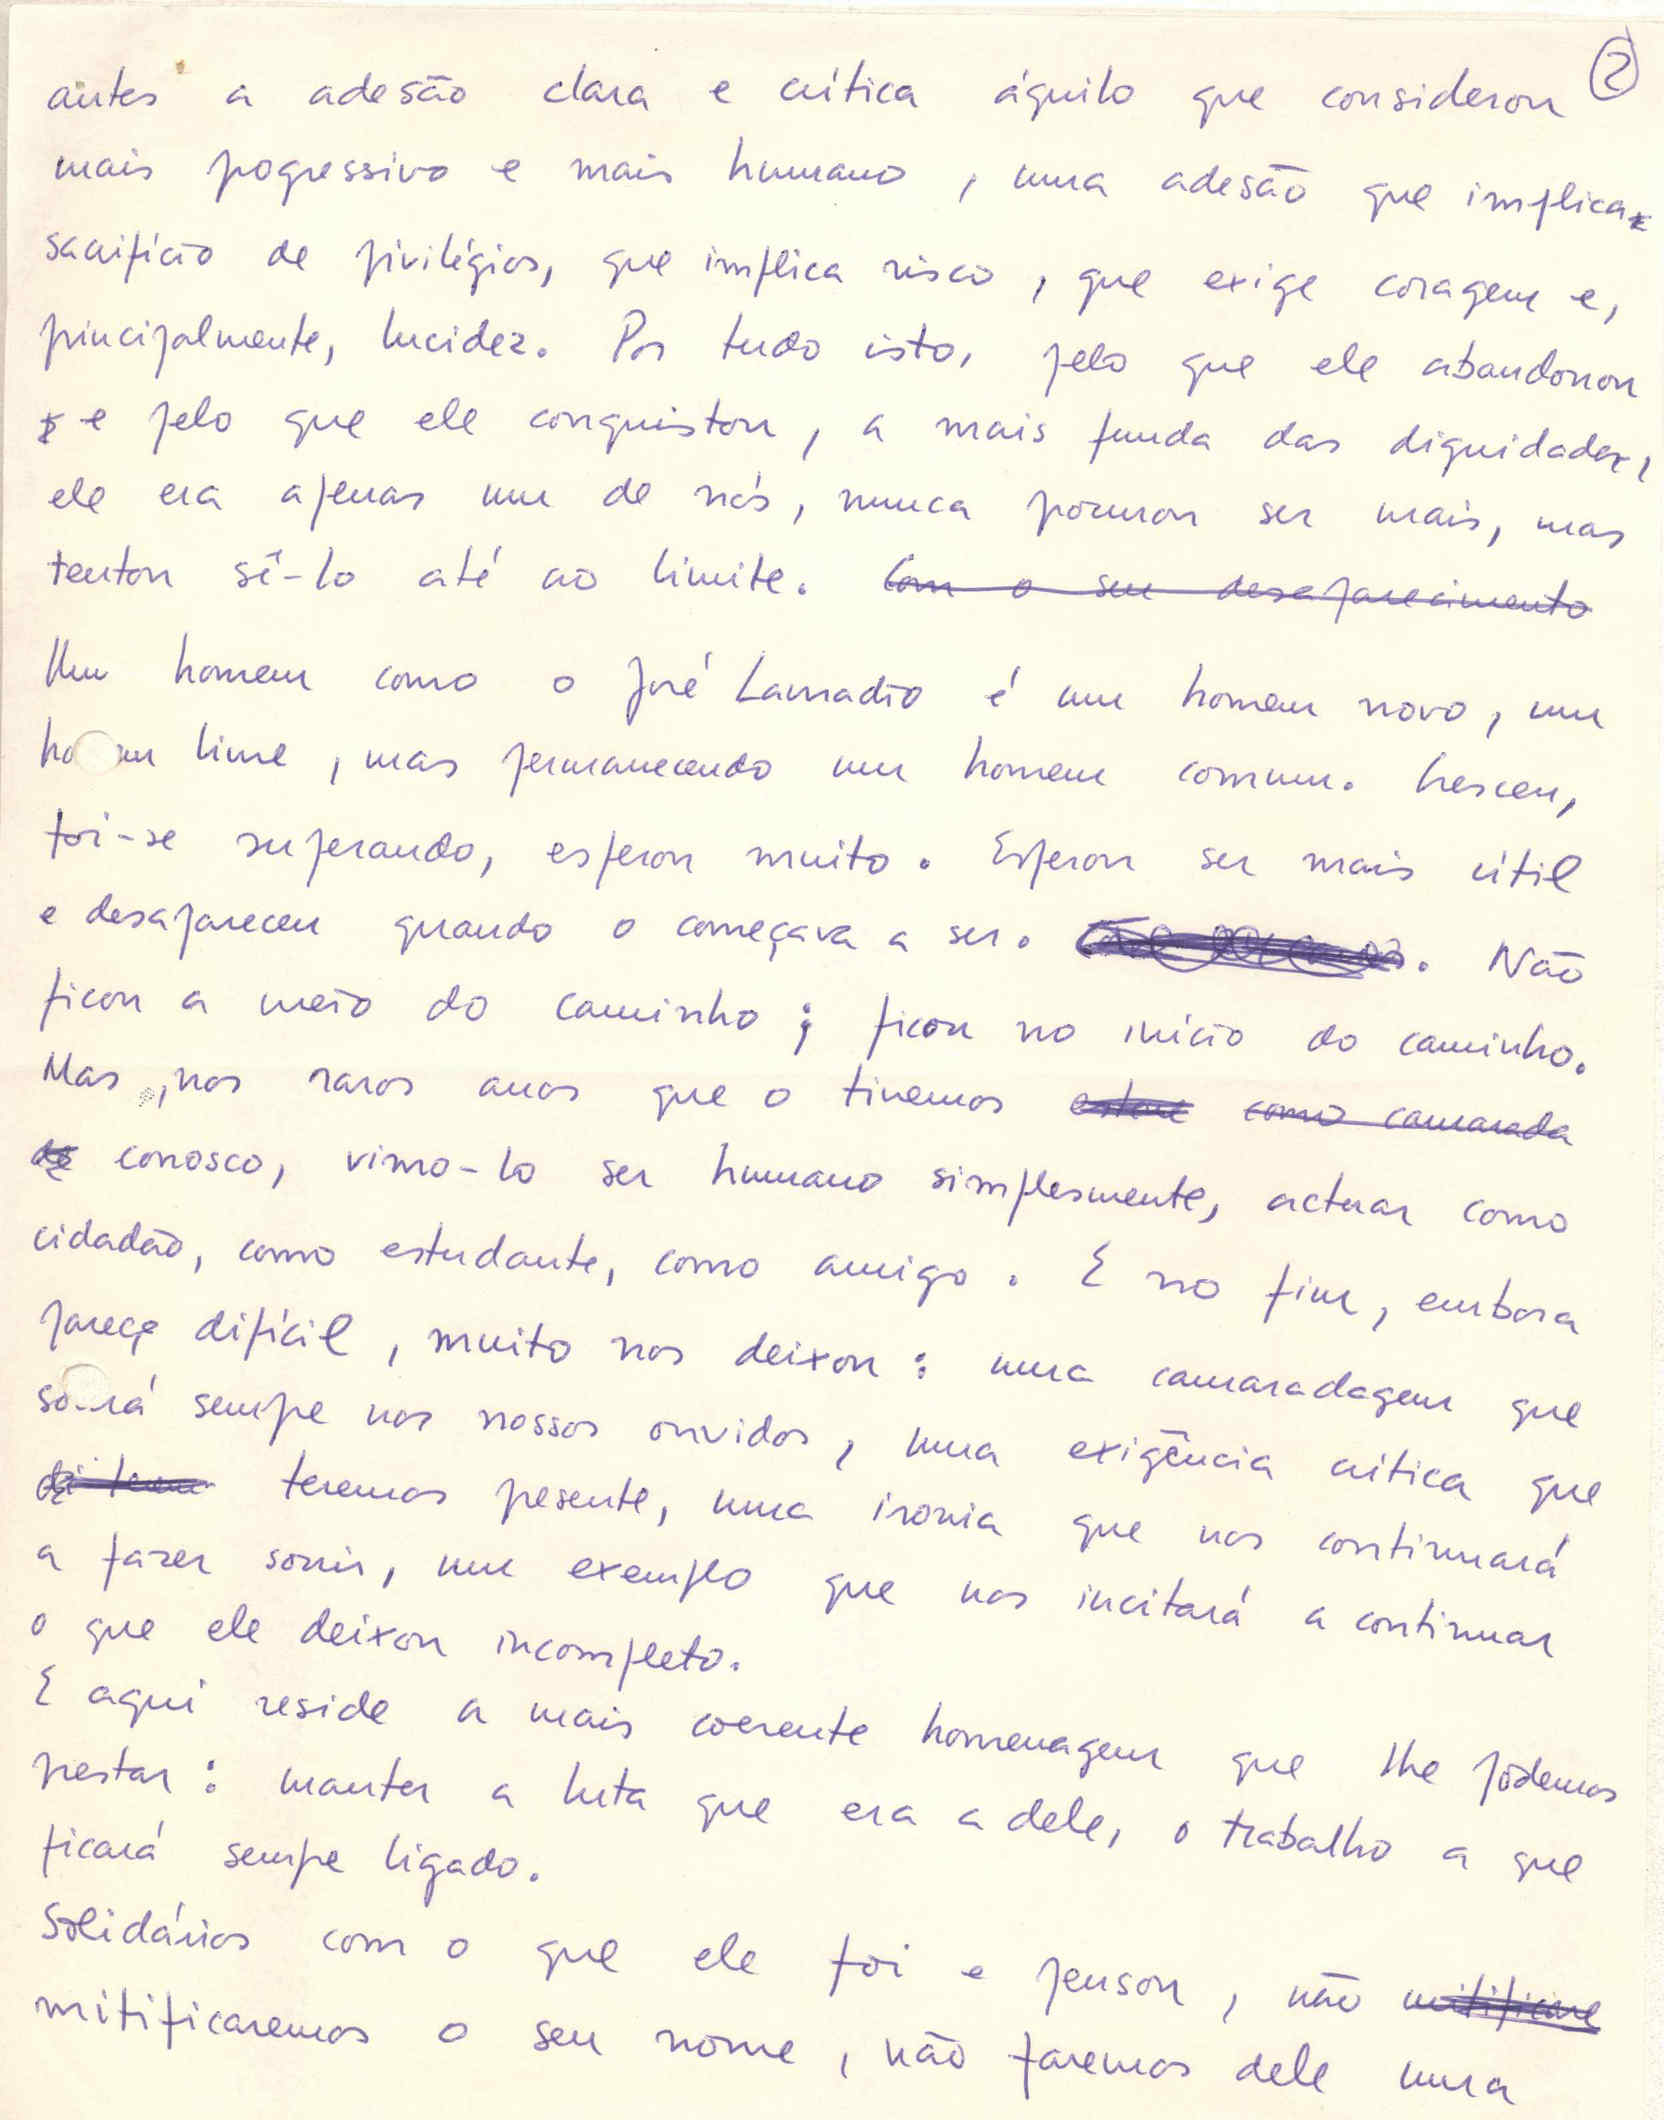 2
antes a adesão clara e crítica áquilo que considerou
mais pogressivo e mais humano, uma adesão que implica
sacrifício de privilégios, que implica risco, que exige coragem e,
principalmente, lucidez. Por tudo isto, pelo que ele abandonou
e pelo que ele conquistou, a mais funda das dignidades,
ele era apenas um de nós, nunca procurou ser mais, mas
tentou sê-lo até ao limite. Com o seu desaparecimento
Um homem como o José Lamradio é um homem novo, um
homem livre, mas permanecendo um homem comum. Cresceu,
foi-se superando, esperou muito. Esperou ser mais útil
e desapareceu quando o começava a ser. . Não
ficou a meio do caminho; ficou no início do caminho.
Mas, nos raros anos que o tivemos esteve como camarada
de conosco, vimo-lo ser humano simplesmente, actuar como
cidadão, como estudante, como amigo. E no fim, embora
pareça difícil, muito nos deixou: uma camaradagem que
soará sempre nos nossos ouvidos, uma exigência crítica que
teremos presente, uma ironia que nos continuará
a fazer sorrir, um exemplo que nos incitará a continuar
o que ele deixou incompleto.
E aqui reside a mais coerente homenagem que lhe podemos
prestar: manter a luta que era a dele, o trabalho a que
ficará sempre ligado.
Solidários com o que ele foi e pensou, não mitificare
mitificaremos o seu nome, não faremos dele uma